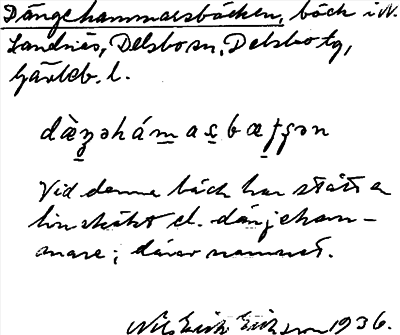 Dängehammarsbäcken, bäck i N.
Sandnäs, Delsbo sn, Delsbo tg,
Gävleb. l.
dæ̀ŋəhám̲as̲bæt̲ʃən
Vid denna bäck har stått en
linskäkt el. dänjeham-
mare; därav namnet.
Nils Erik Eriksson 1936.